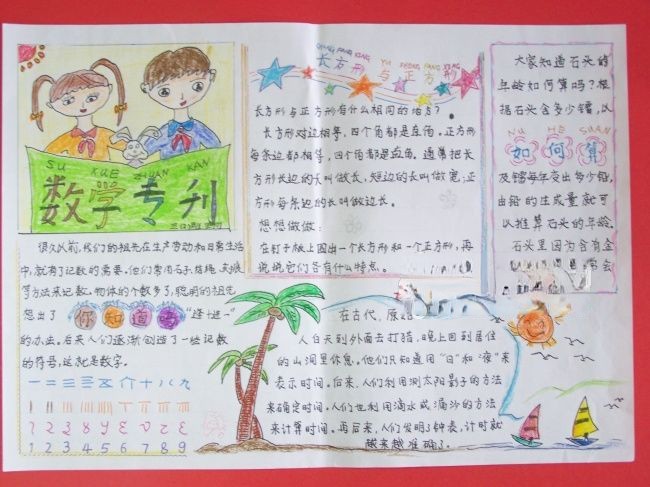 SU XUE ZHUAN KAN
数学专刊
很久以前,我们的祖先在生产劳动和日常生活
中,就有了记数的需要。他们常用石子、结绳、
等方法来记数。物体的个数多了,聪明的祖先
想出了 你知道吗 “逢进一”
的办法。后来人们逐渐创造了一些记数
的符号,这就是数字。
一 二 三 三 五 六 十 八 九
1 2 3 4 5 6 7 8 9
CHANG FANG XING YU ZHENG FANG XING
长方形与正方形
长方形与正方形有什么相同的地方?
长方形对边相等,四个角都是直角。正方形
每条边都相等,四个角都是直角。通常把长
方形长边的长叫做长,短边的长叫做宽;正
方形每条边的长叫做边长。
想想做做:
在钉子板上围出一个长方形和一个正方形,再
说说它们各有什么特点。
大家知道石头的
年龄如何算吗?根
据石头含多少铀,以
RU HE SUAN
如何算
及铀每年变出多少铅,
由铅的生成量就可
以推算石头的年龄。
石头里因为含有金
常会
在古代,原
人白天到外面去打猎,晚上回到居住
的山洞里休息。他们只知道用“日”和“夜”来
表示时间。后来,人们利用测太阳影子的方法
来确定时间。人们也利用滴水或漏沙的方法
来计算时间。再后来,人们发明了钟表,计时就
越来越准确了。